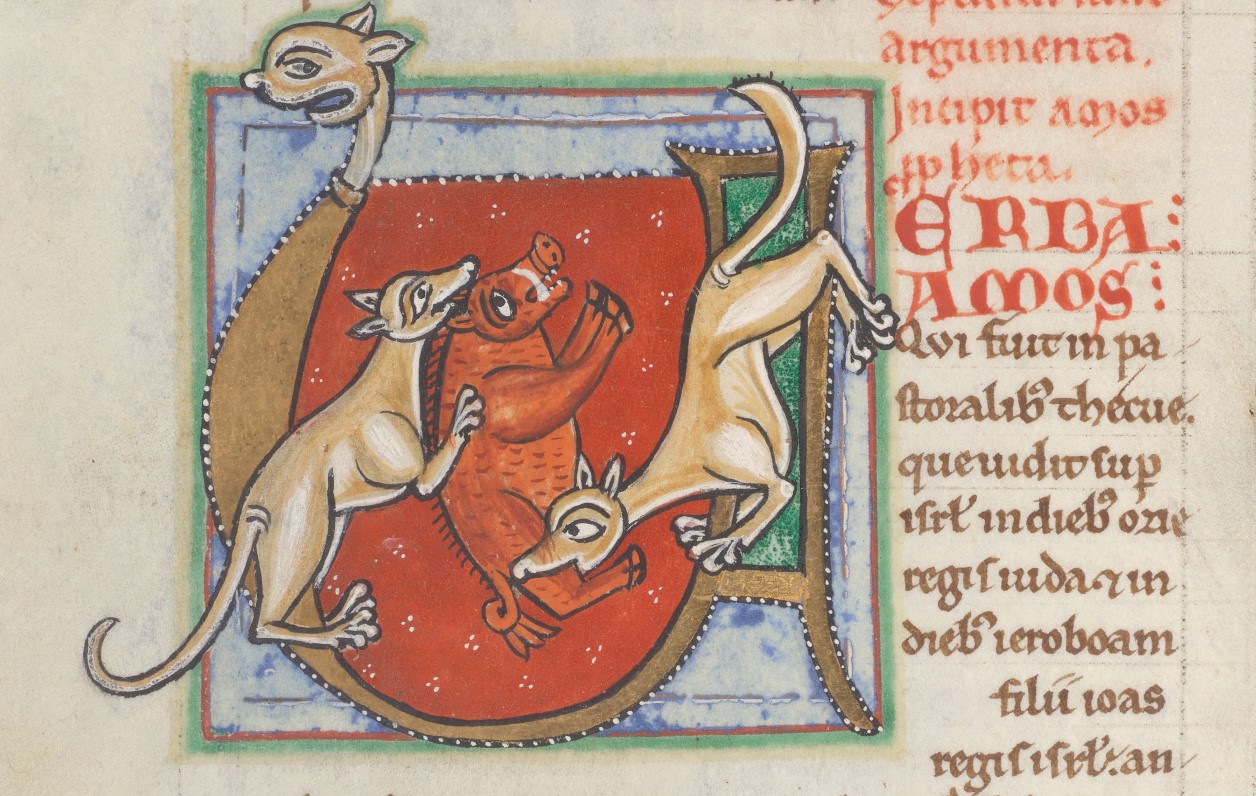 argumenta.
Incipit amos
ꝓpheta.
U ERBA:
AMOS:
Qui fuit in pa
storalibꝰ thecue.
que uidit sup̄
isrł in diebꝰ ozie
regis iuda ⁊ in
diebꝰ ieroboam
filii ioas
regis isrł. an